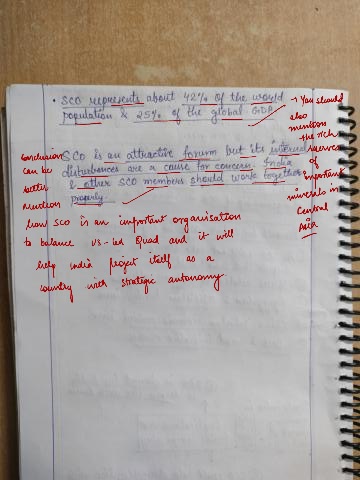 • SCO represents about 42% of the world
population & 25% of the global GDP.
→ You should
also
mention
the rich
reserves
of
important
minerals in
Central
Asia
SCO is an attractive forum but its internal
disturbences are a cause for concern. India
& other SCO members should work together
properly.
Conclusion
can be
better
Mention
how SCO is an important organisation
to balance US-led Quad and it will
help India project itself as a
country with strategic autonomy